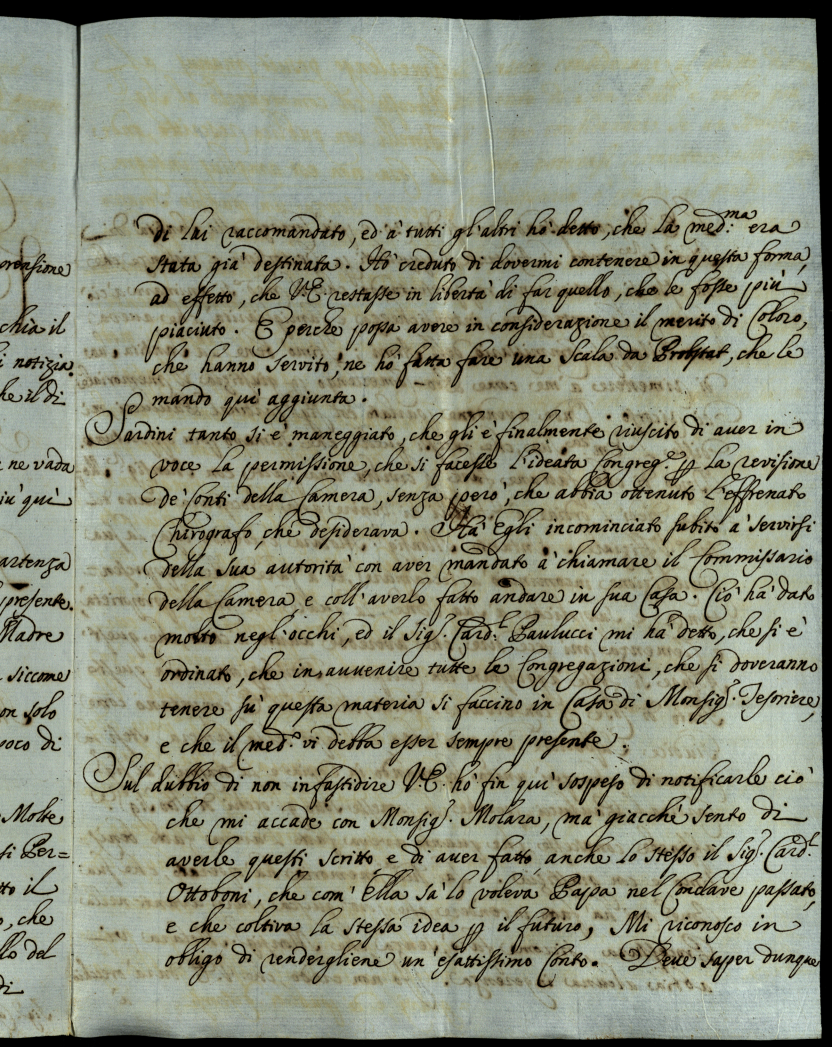 prensione
chia il
i notizia
he il di
ne vada
iù quì
artenza
presente.
Madre
siccome
on solo
poco di
Molte
ti Per=
tto il
o, che
llo del
di
di lui raccomandato, ed à tutti gl'altri hò detto, che la med:ma era
stata già destinata. Hò creduto di dovermi contenere in questa forma,
ad effetto, che V.E. restasse in libertà di far quello, che le fosse più
piaciuto. E perche possa avere in considerazione il merito di Coloro,
che hanno servito, ne hò fatta fare una Scala da Probstat, che le
mando quì aggiunta.
Sardini tanto si è maneggiato, che gli è finalmente riuscito di aver in
voce la permissione, che si facesse l'ideata Congreg.e p la revisione
de' Conti della Camera, senza però, che abbia ottenuto l'effrenato
Chirografo, che desiderava. Hà Egli incominciato subito à servirsi
della sua autorità con aver mandato à chiamare il Commissario
della Camera, e coll'averlo fatto andare in sua Casa. Ciò hà dato
molto negl'occhi, ed il Sig.r Card.l Paulucci mi hà detto, che si è
ordinato, che in avvenire tutte le Congregazioni, che si doveranno
tenere sù questa materia si faccino in Casa di Monsig.r Tesoriere,
e che il med.o vi debba esser sempre presente.
Sul dubbio di non infastidire V.E. hò fin quì sospeso di notificarle ciò
che mi accade con Monsig.r Molara, mà giacchè sento di
averle questi scritto e di aver fatto anche lo stesso il Sig.r Card.l
Ottoboni, che com'Ella sà lo voleva Papa nel Conclave passato,
e che coltiva la stessa idea p il futuro, Mi riconosco in
obligo di rendergliene un'esattissimo Conto. Deve saper dunque